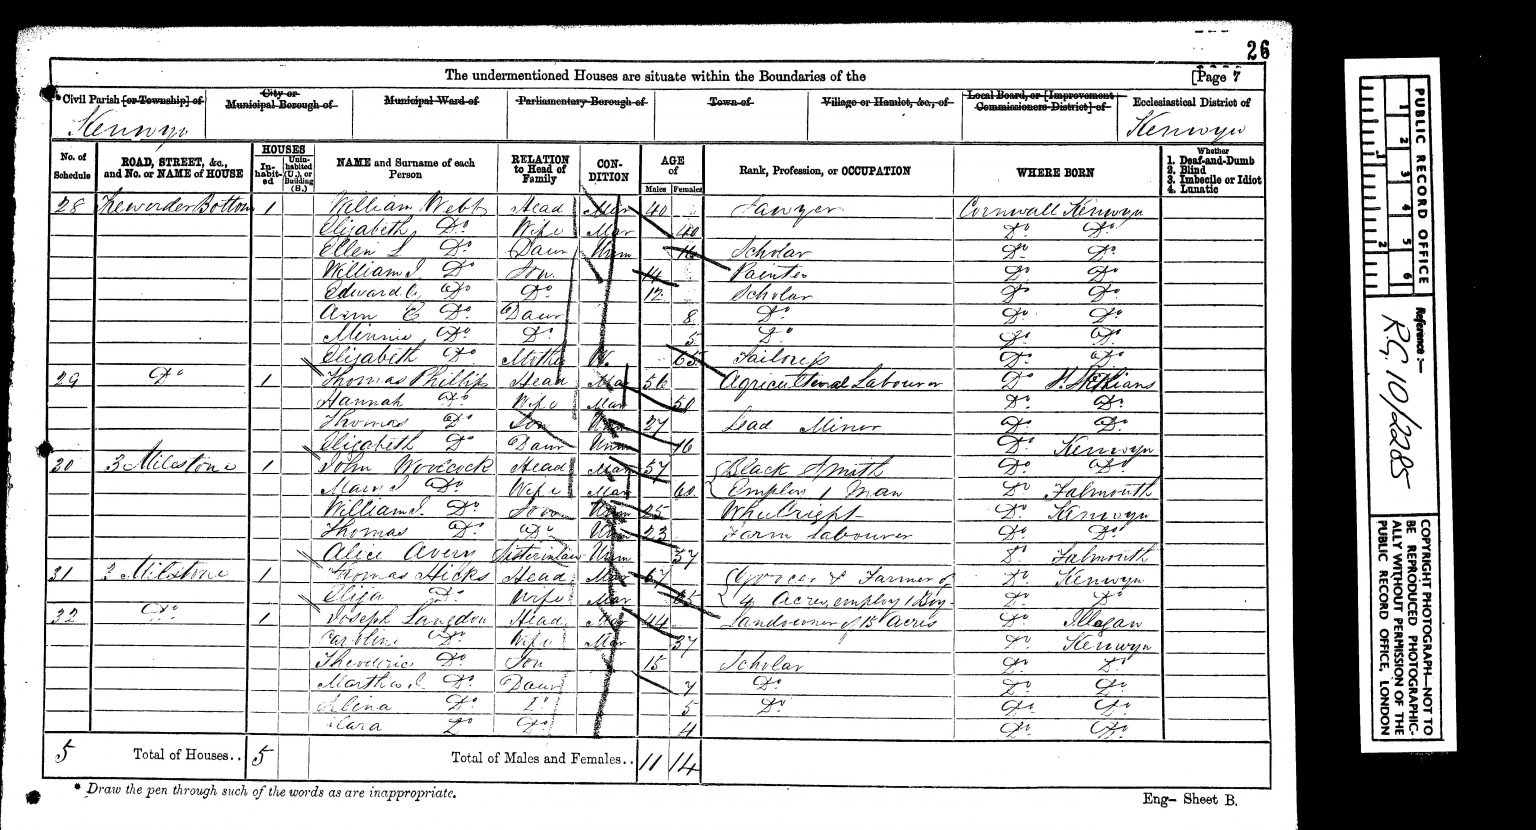 26
The undermentioned Houses are situate within the Boundaries of the
[Page 7
Civil Parish [or Township] of
City or Municipal Borough of
Municipal Ward of
Parliamentary Borough of
Town of
Village or Hamlet, &c., of
Local Board, or [Improvement Commissioners District] of
Ecclesiastical District of
Kenwyn
Kenwyn
No. of Schedule
ROAD, STREET, &c., and No. or NAME of HOUSE
HOUSES
In-habit-ed
Unin-habited (U.), or Building (B.)
NAME and Surname of each Person
RELATION to Head of Family
CON-DITION
AGE of
Males
Females
Rank, Profession, or OCCUPATION
WHERE BORN
Whether
1. Deaf-and-Dumb
2. Blind
3. Imbecile or Idiot
4. Lunatic
28 Bottom 1 William Webb Head Mar 40 Sawyer Cornwall Kenwyn
Elizabeth Do Wife Mar 40 Do Do
Ellen L Do Daur Unm 16 Scholar Do Do
William J. Do Son 14 Painter Do Do
Edward Do Do 12 Scholar Do Do
Ann E Do Daur 8 Do Do Do
Minnie Do Do 5 Do Do Do
Elizabeth Do Mother W. 65 Do Do
29 Do 1 Thomas Phillips Head Mar 56 Agricultural Labourer Do
Hannah Do Wife Mar 50 Do Do
Thomas Do Son Unm 27 Lead Miner Do Do
Elizabeth Do Daur Unm 16 Do Kenwyn
30 3 Milestone 1 John Woolcock Head Mar 57 Black Smith Do Do
Mary J Do Wife Mar 60 Employ 1 Man Do Falmouth
William J. Do Son Unm 25 Do Kenwyn
Thomas Do Do Unm 23 Farm labourer Do Do
Alice Avery Sisterinlaw Unm 57 Do Falmouth
31 3 Milstone 1 Thomas Hicks Head Mar 67 Grocer & Farmer of Do Kenwyn
Eliza Do Wife Mar 65 4 Acres employ 1 Boy Do Do
32 Do 1 Joseph Langdon Head Mar 44 Landowner of 15 Acres Do Illogan
Caroline Do Wife Mar 37 Do Kenwyn
Theoderic Do Son 15 Scholar Do Do
Martha J. Do Daur 7 Do Do Do
Alena Do Do 5 Do Do Do
Clara Do Do 4 Do Do
5 Total of Houses.. 5 Total of Males and Females.. 11 14
* Draw the pen through such of the words as are inappropriate.
Eng- Sheet B.
PUBLIC RECORD OFFICE
1 2 3 4 5 6
1 2
Reference:-
RG 10/2285
COPYRIGHT PHOTOGRAPH-NOT TO BE REPRODUCED PHOTOGRAPHIC-ALLY WITHOUT PERMISSION OF THE PUBLIC RECORD OFFICE, LONDON